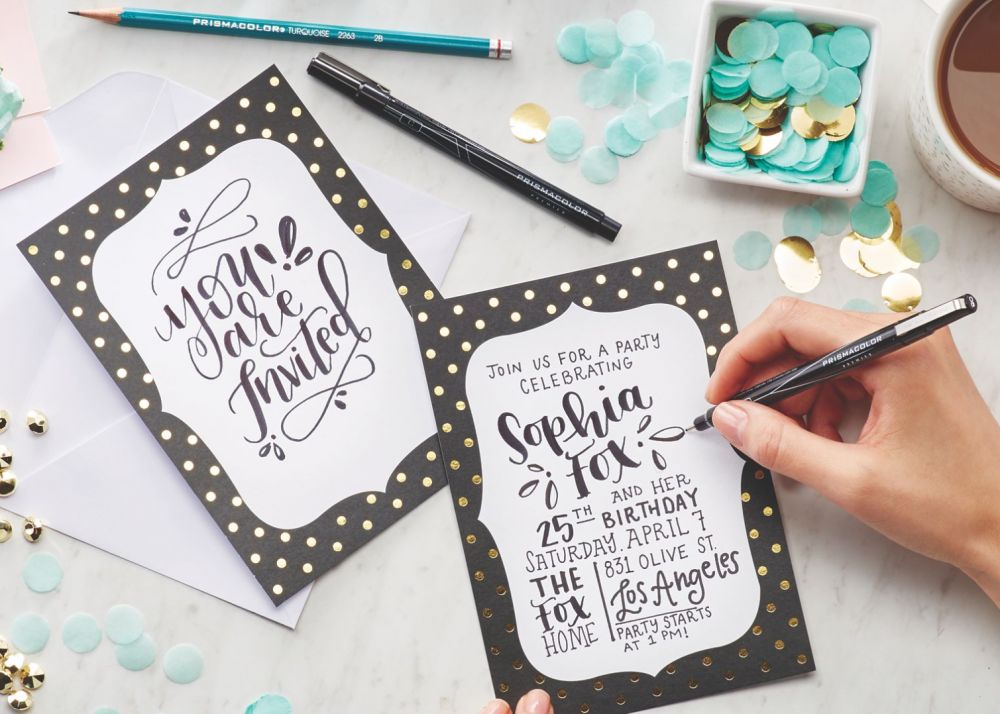 PRISMACOLOR TURQUOISE 2263 2B
PRISMACOLOR
PREMIER
You
are
Invited
JOIN US FOR A PARTY
CELEBRATING
Sophia
Fox
AND HER
25TH BIRTHDAY
SATURDAY, APRIL 7
THE
FOX
HOME
831 OLIVE ST.
Los Angeles
PARTY STARTS
AT 1 PM!
PRISMACOLOR
08